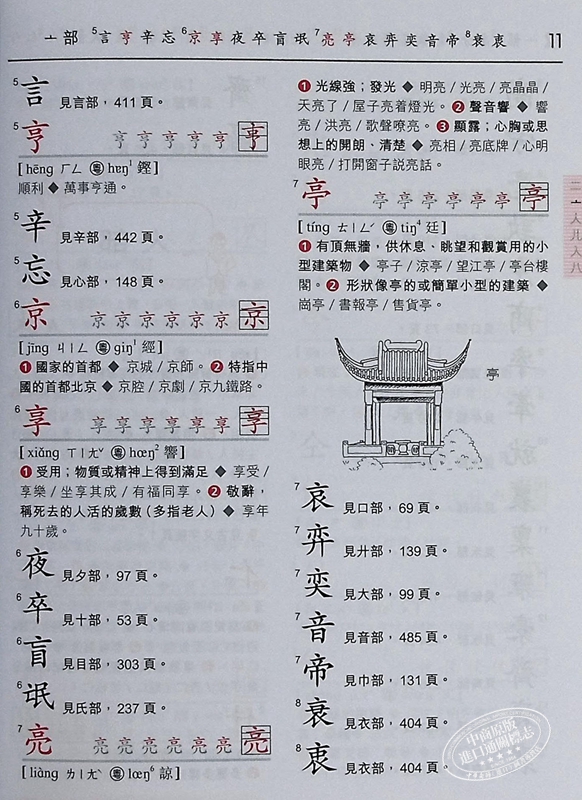 亠部 5言亨辛忘 6京享夜卒盲氓 7亮亭哀弈奕音帝 8衰衷 11
5 言 見言部，411 頁。
5 亨 亨亨亨亨亨亨
[ hēng ㄏㄥ 粵 hɐŋ1 鏗 ]
順利 ◆ 萬事亨通。
5 辛 見辛部，442 頁。
5 忘 見心部，148 頁。
6 京 京京京京京京
[ jīng ㄐㄧㄥ 粵 giŋ1 經 ]
❶ 國家的首都 ◆ 京城 / 京師。❷ 特指中
國的首都北京 ◆ 京腔 / 京劇 / 京九鐵路。
6 享 享享享享享享享
[ xiǎng ㄒㄧㄤˇ 粵 hœŋ2 響 ]
❶ 受用；物質或精神上得到滿足 ◆ 享受 /
享樂 / 坐享其成 / 有福同享。❷ 敬辭，
稱死去的人活的歲數（多指老人）◆ 享年
九十歲。
6 夜 見夕部，97 頁。
6 卒 見十部，53 頁。
6 盲 見目部，303 頁。
6 氓 見氏部，237 頁。
7 亮 亮亮亮亮亮亮亮
[ liàng ㄌㄧㄤˋ 粵 lœŋ6 諒 ]
❶ 光線強；發光 ◆ 明亮 / 光亮 / 亮晶晶 /
天亮了 / 屋子亮着燈光。❷ 聲音響 ◆ 響
亮 / 洪亮 / 歌聲嘹亮。❸ 顯露；心胸或思
想上的開朗、清楚 ◆ 亮相 / 亮底牌 / 心明
眼亮 / 打開窗子説亮話。
7 亭 亭亭亭亭亭亭亭
[ tíng ㄊㄧㄥˊ 粵 tiŋ4 廷 ]
❶ 有頂無牆，供休息、眺望和觀賞用的小
型建築物 ◆ 亭子 / 涼亭 / 望江亭 / 亭台樓
閣。❷ 形狀像亭的或簡單小型的建築 ◆
崗亭 / 書報亭 / 售貨亭。
亭
7 哀 見口部，69 頁。
7 弈 見廾部，139 頁。
7 奕 見大部，99 頁。
7 音 見音部，485 頁。
7 帝 見巾部，131 頁。
8 衰 見衣部，404 頁。
8 衷 見衣部，404 頁。
二亠人儿入八
中商原版
進口通關標志